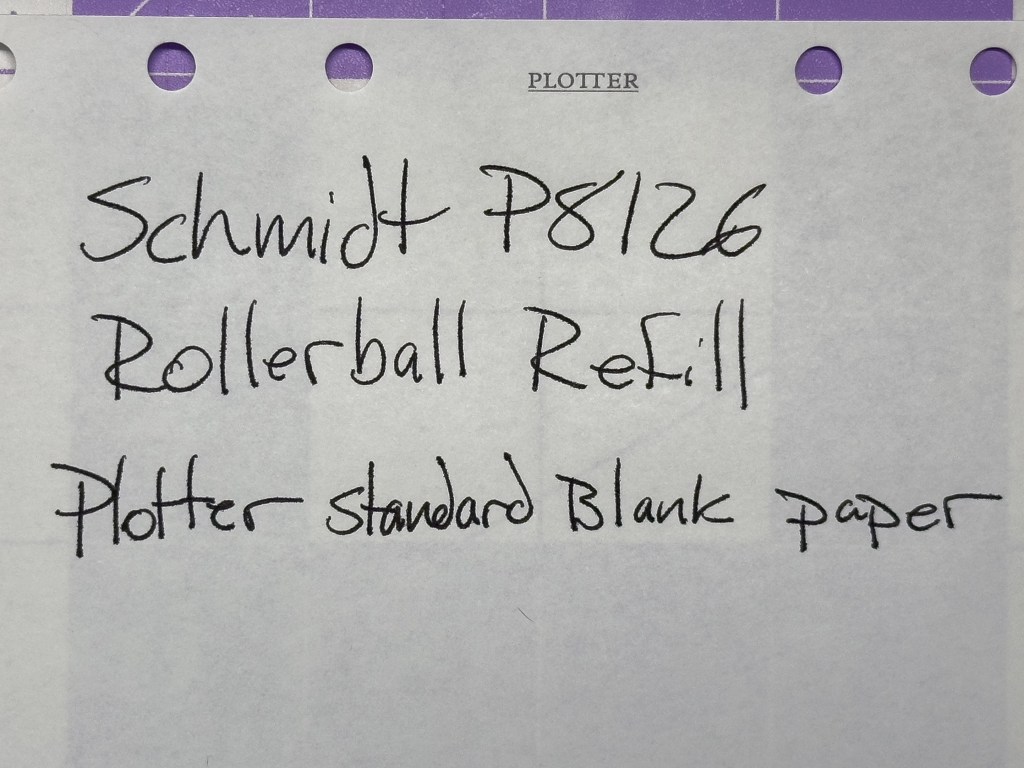 PLOTTER
Schmidt P8126
Rollerball Refill
Plotter standard Blank paper